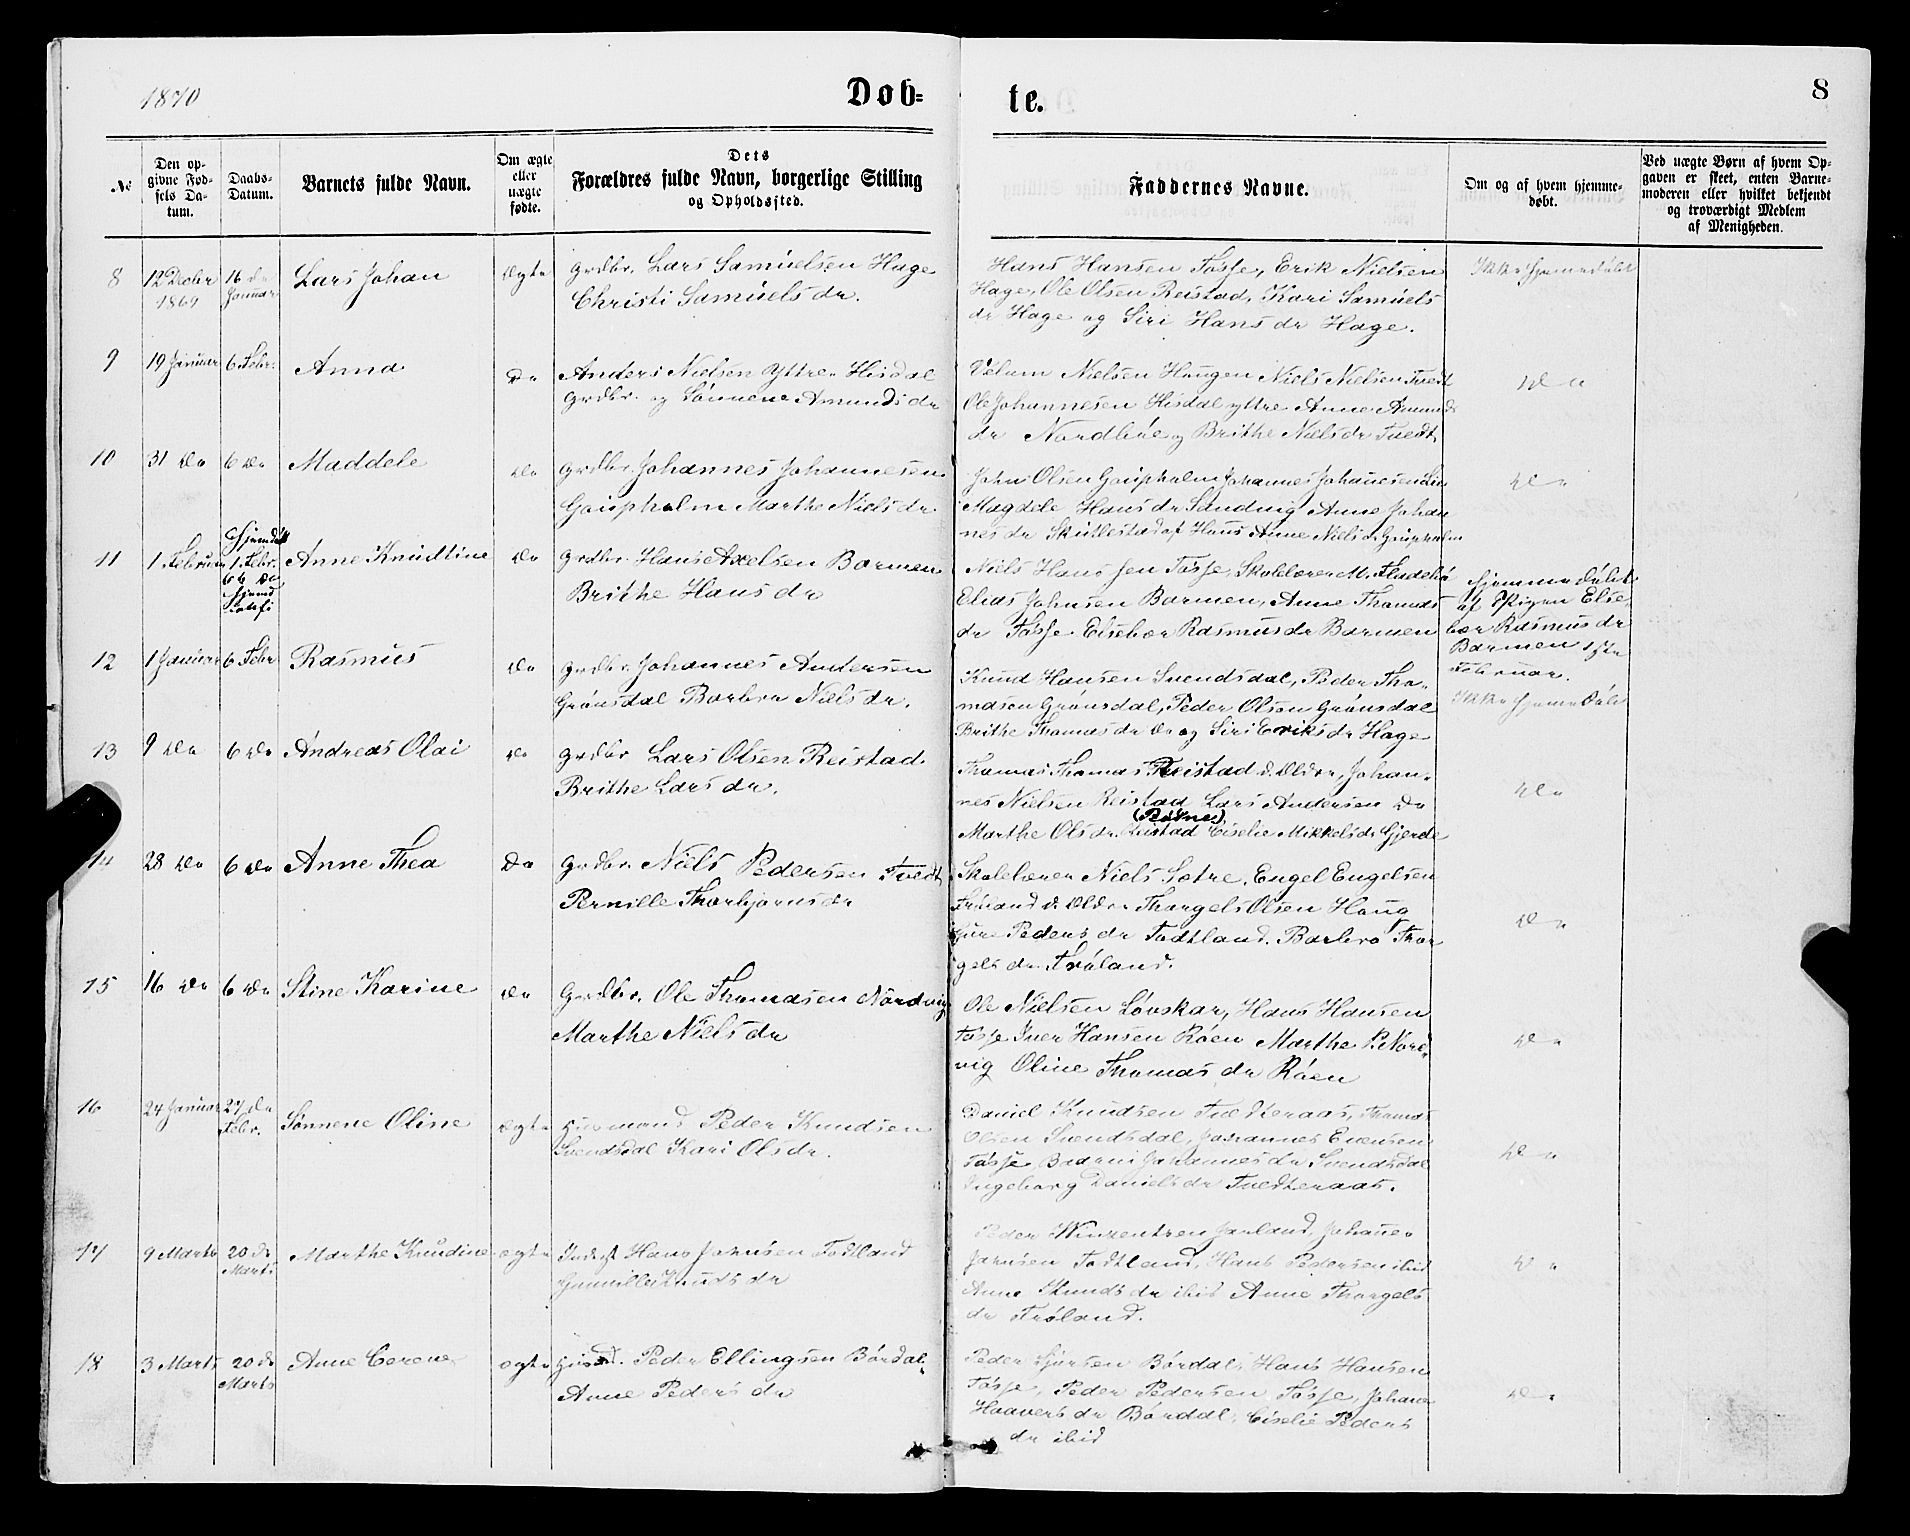 1870
Døb=
te.
8
No
Den op-
givne Fød-
sels Da-
tum.
Daabs-
Datum.
Barnets fulde Navn.
Om ægte
eller
uægte
fødte.
Dets
Forældres fulde Navn, borgerlige Stilling
og Opholdssted.
Faddernes Navne.
Om og af hvem hjemme-
døbt.
Ved uægte Børn af hvem Op-
gaven er skeet, enten Barne-
moderen eller hvilket bekjendt
og troværdigt Medlem
af Menigheden.
8
12 Decbr
1869
16 de
Januar
Lars Johan
ægte
Grdbr. Lars Samuelsen Hage
Christi Samuelsdr.
Hans Hansen Tøsse, Erik Nielsen
Hage, Ole Olsen Reistad, Kari Samuels
dr Hage og Siri Hansdr Hage.
Ikke hjemmedøbt
9
19 Januar
6 Febr.
Anna
Do
Anders Nielsen Yttre Hisdal
Grdbr. og Sønneve Amundsdr
Nielsen Haugen Niels Nielsen Tvedt
Ole Johannesen Hisdal yttre Anne Amunds
dr Nordbøe og Brithe Nielsdr Tvedt
Do
10
31 Do
6 Do
Maddele
Do
Grdbr. Johannes Johannesen
Gaupholm Marthe Nielsdr
John Olsen Gaupholm Johannes Johanesen
Magdele Hansdr Sandvig Anne Johan
nesdr Skutlestad Anne Nielsdr Gaupholm
Do
11
1 Februar
Hjemdøbt
1 Febr.
6 Do
Anne Knudtine
Do
Grdbr. Hans Axelsen Barmen
Brithe Hansdr
Niels Hansjen Tøsse, Skolelærer M.
Elias Johnsen Barmen, Anne Thomas
dr Tøsse Elsebær Rasmusdr Barmen
Hjemmedøbt
af Pigen Else
bær Rasmusdr
Barmen 1ste
Februar.
12
1 Januar
6 Febr
Rasmus
Do
Grdbr. Johannes Andersen
Grønsdal Barbra Nielsdr.
Knud Hansen Svendsdal, Peder Tho-
masen Grønsdal, Peder Olsen Grønsdal
Brithe Thomasdr Do og Siri Eriksdr Hage
Ikke hjemmedøbt
13
9 Do
6 Do
Andreas Olai
Do
Grdbr Lars Olsen Reistad
Brithe Larsdr.
Thomas Thomas Reistad d. Ældre, Johan-
nes Nielsen Reistad Lars Andersen Do
(Røvnes)
Marthe Olsdr. Reistad Ciselie Mikkelsdr Gjerde
Do
14
28 Do
6 Do
Anne Thea
Do
Grdbr. Niels Pedersen Tvedt
Pernille Thorbjørnsdr
Skolelærer Niels Sætre, Engel Engelsen
Frøland d. Ældre Thorgels Olsen Haug
Guri Pedersdr Tadtland. Barbra Thor
gelsdr. Frøland.
Do
15
16 Do
6 Do
Stine Karine
Do
Grdbr. Ole Thomasen Nordvig
Marthe Nielsdr
Ole Nielsen Løvskar, Hans Hansen
Tøsse Iver Hansen Røen Marthe P. Nord-
vig Oline Thomasdr Røen
Do
16
24 Januar
27 de
Febr.
Sønneve Oline
ægte
Husmand Peder Knudsen
Svendsdal Kari Olsdr.
Daniel Knudsen Tvedteraas, Thomas
Olsen Svendsdal, Johannes Evensen
Tøsse Johannesdr Svendsdal
Ingeborg Danielsdr Tvedteraas.
Do
17
9 Marts
20 de
Marts
Marthe Knudine
ægte
Inderst Hans Johnsen Tadtland
Gunnille Knudsdr
Peder Johanes
Johnsen Tadtland, Hans Pedersen ibid
Anne Knudsdr ibid Anne Thorgels
dr Frøland.
Do
18
3 Marts
20 de
Marts
Anne Cerene
ægte
Peder Ellingsen Børdal
Anne Pedersdr
Peder Børdal, Hans Hansen
Tøsse, Peder Pedersen Tøsse, Johane
Haaversdr Børdal, Ciselie Peders
dr ibid
Do